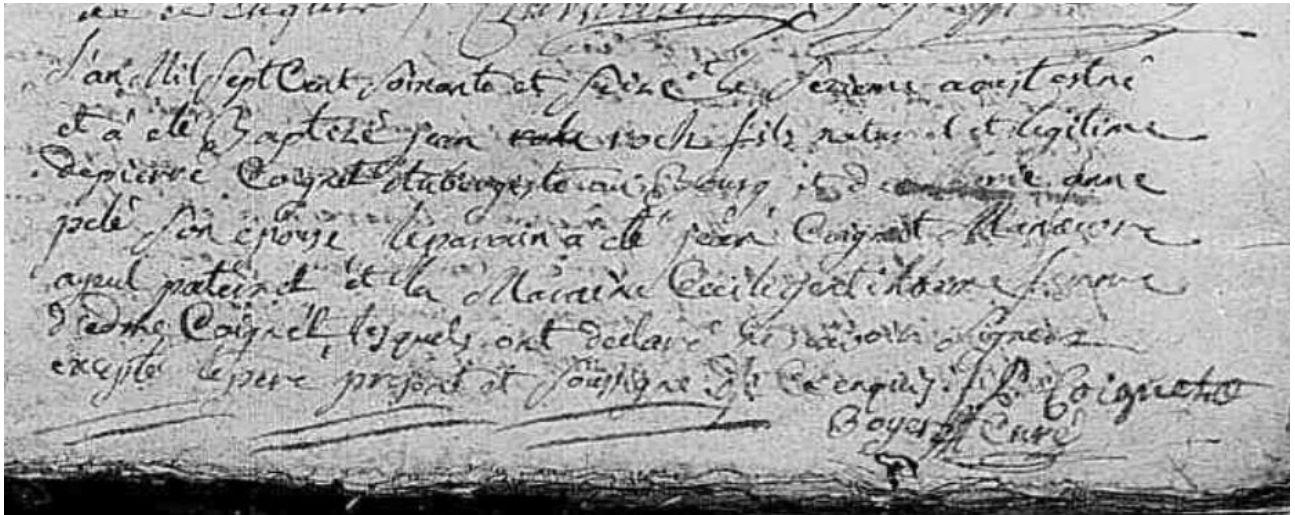 de ce requis
L'an Mil Sept Cent soixante et seize le sezieme aoust est né
et à eté Baptizé jean roch fils naturel et legitime
de pierre Coignet Aubergiste au Bourg et de anne
pelé son epouse le parain à eté jean Coignet Manoeuvre
ayeul paternel et la Maraine Cecile gentilhomme femme
d'edme Coignet lesquels ont declaré ne scavoir signer
excepté le pere present et soussigné de ce enquis P Coignet
Boyer Curé